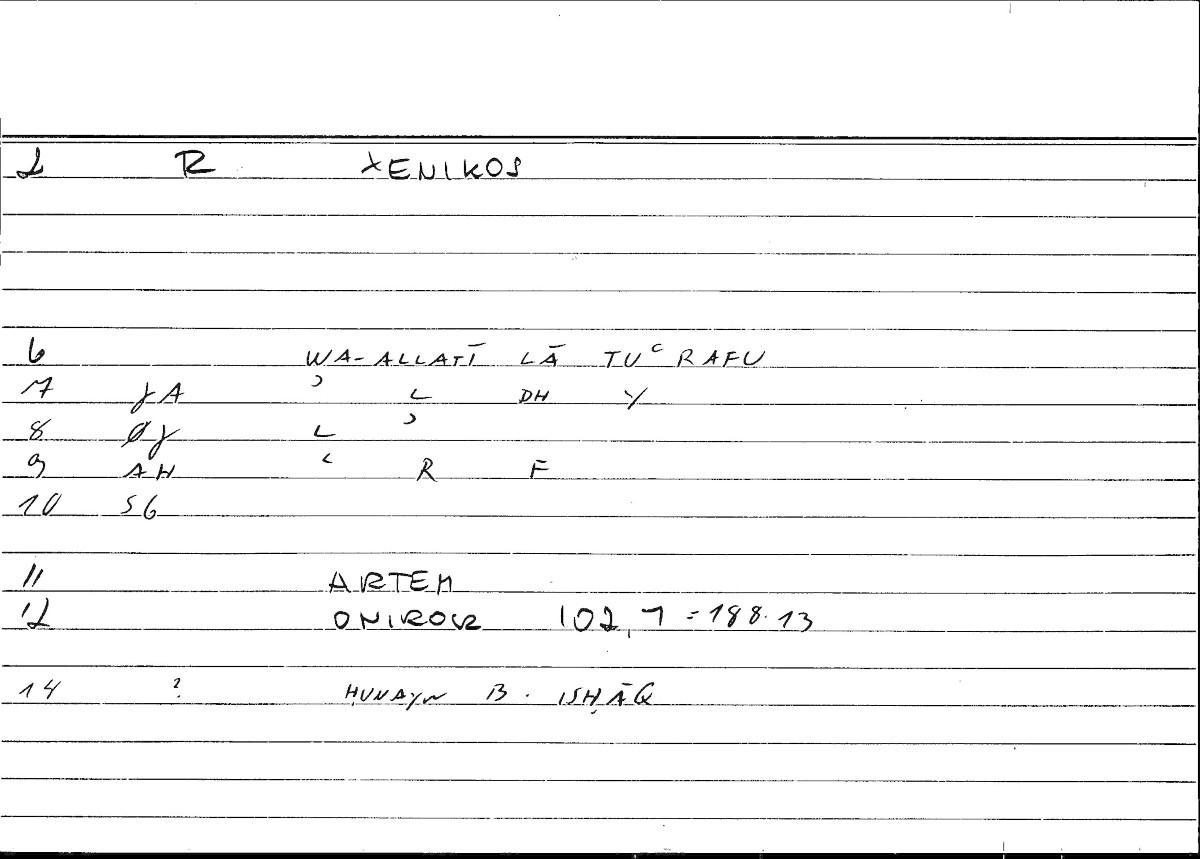 2 R XENIKOS
6 WA-ALLATĪ LĀ TUʿRAFU
7 JA ʾ L DH Y
8 ØJ L ʾ
9 AH ʿ R F
10 SG
11 ARTEM
12 ONIROCR 102,7 = 188.13
14 ? ḤUNAYN B. ISḤĀQ